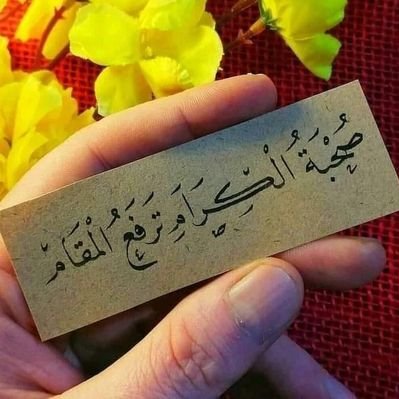 صُحْبَةُ الْكِرَامِ تَرْفَعُ الْمَقَامْ